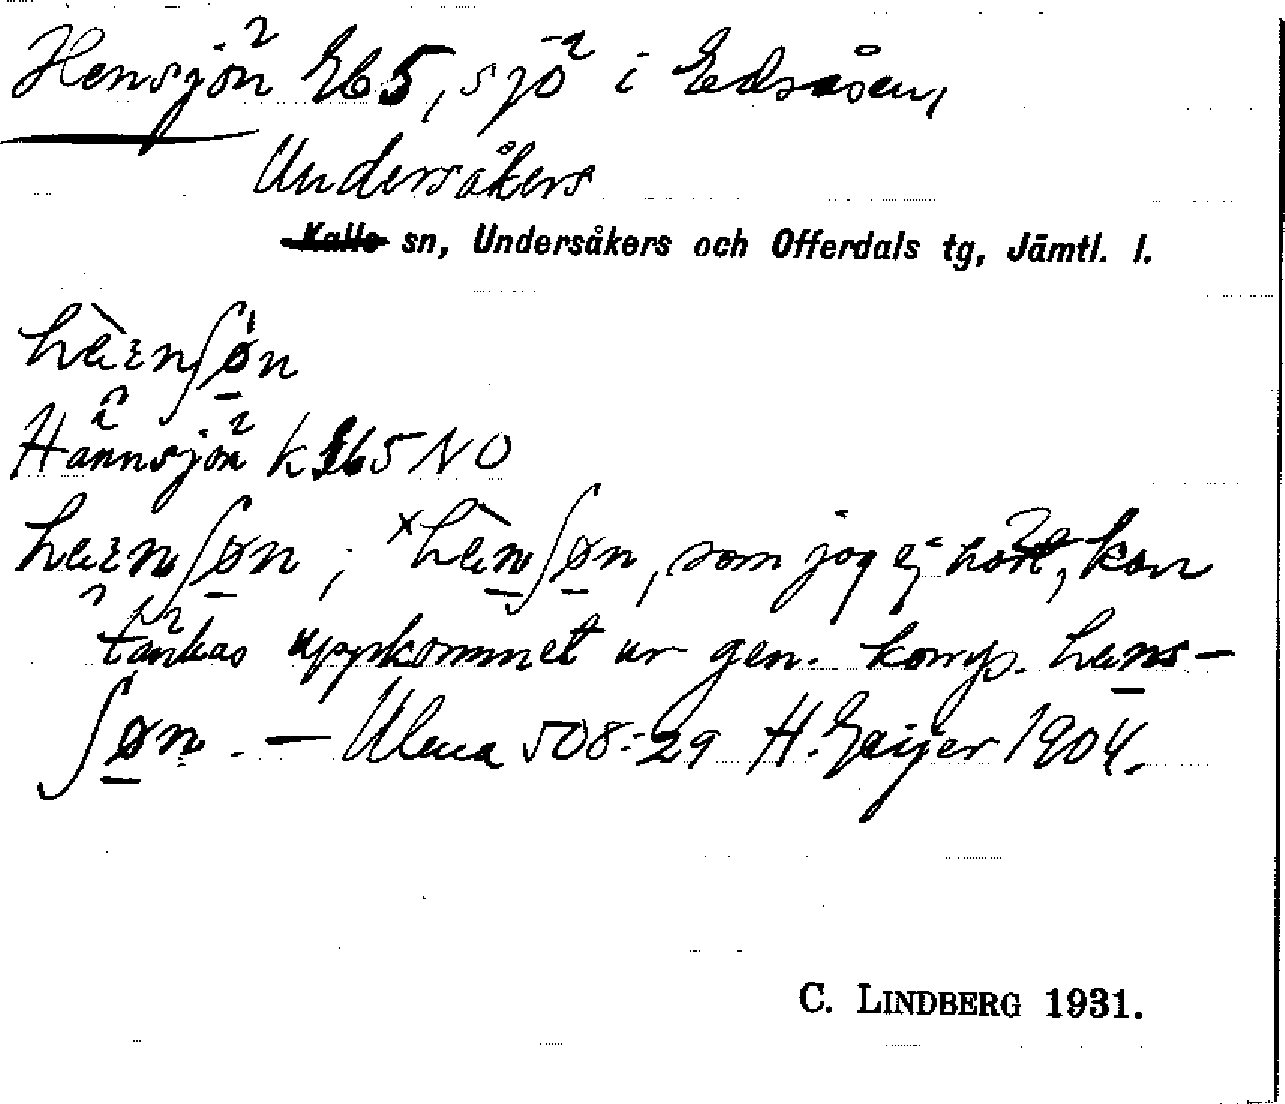 Hensjön Eb5, sjö i Edsåsen,
Undersåkers
Kalls sn, Undersåkers och Offerdals tg, Jämtl. l.
Hännsjön k Eb5 NO
som jag ej hört, kan
tänkas uppkommet ur gen. komp.
— Ulma 508:29 H. Geijer 1904.
C. LINDBERG 1931.